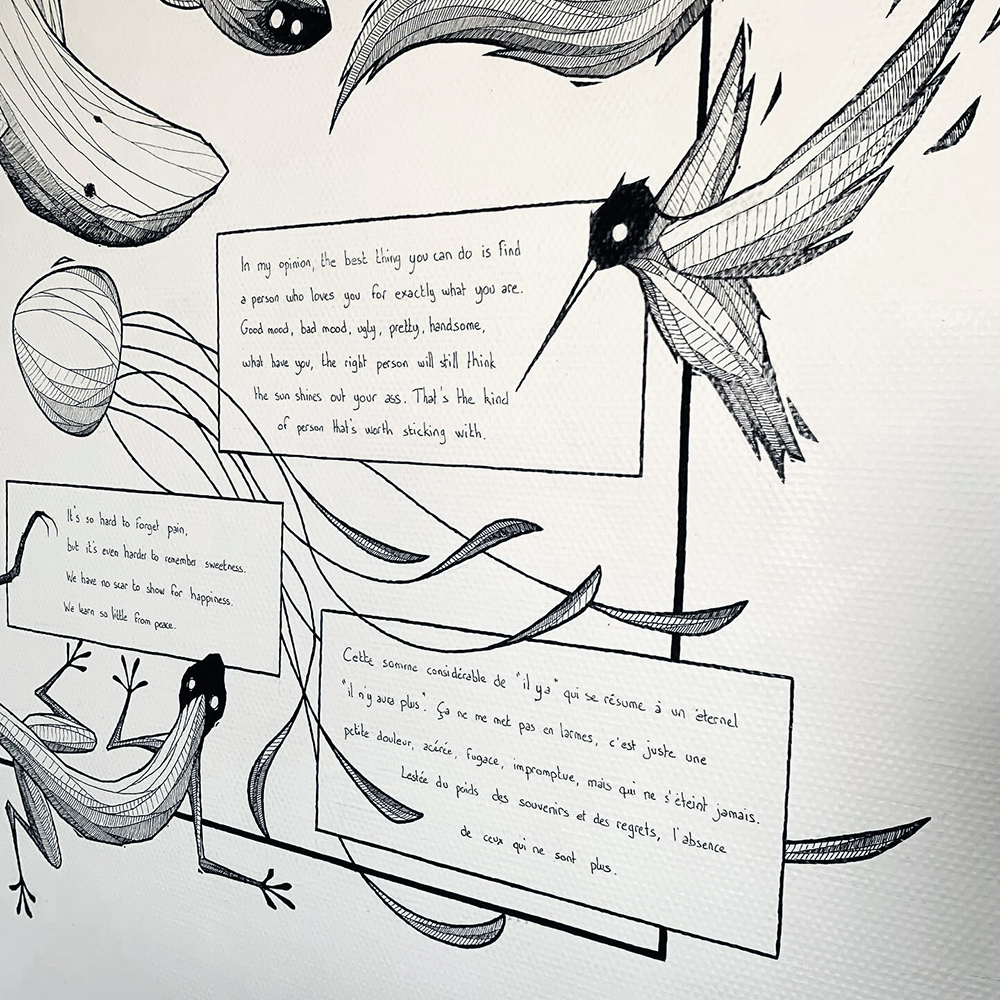 In my opinion, the best thing you can do is find
a person who loves you for exactly what you are.
Good mood, bad mood, ugly, pretty, handsome,
what have you, the right person will still think
the sun shines out your ass. That's the kind
of person that's worth sticking with.
It's so hard to forget pain,
but it's even harder to remember sweetness.
We have no scar to show for happiness.
We learn so little from peace.
Cette somme considérable de "il y a" qui se résume à un éternel
"il n'y aura plus". Ça ne me met pas en larmes, c'est juste une
petite douleur, acérée, fugace, impromptue, mais qui ne s'éteint jamais.
Lestée du poids des souvenirs et des regrets, l'absence
de ceux qui ne sont plus.